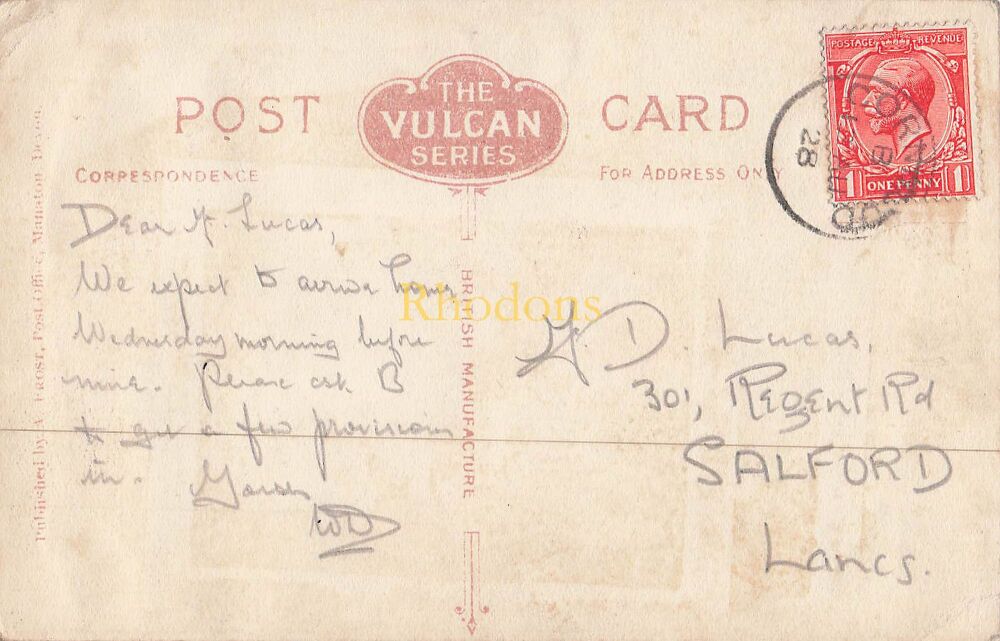 POST CARD
THE
VULCAN
SERIES
CORRESPONDENCE
FOR ADDRESS ONLY
POSTAGE REVENUE
1 ONE PENNY 1
28
Dear Mr. Lucas,
We expect to arrive home
Wednesday morning before
nine. Please ask B
to get a few provisions
in. Yours
WD
Rhodons
BRITISH MANUFACTURE
D. Lucas,
301, Regent Rd
SALFORD
Lancs.
Published by A. Frost, Post Office, Manaton Devon